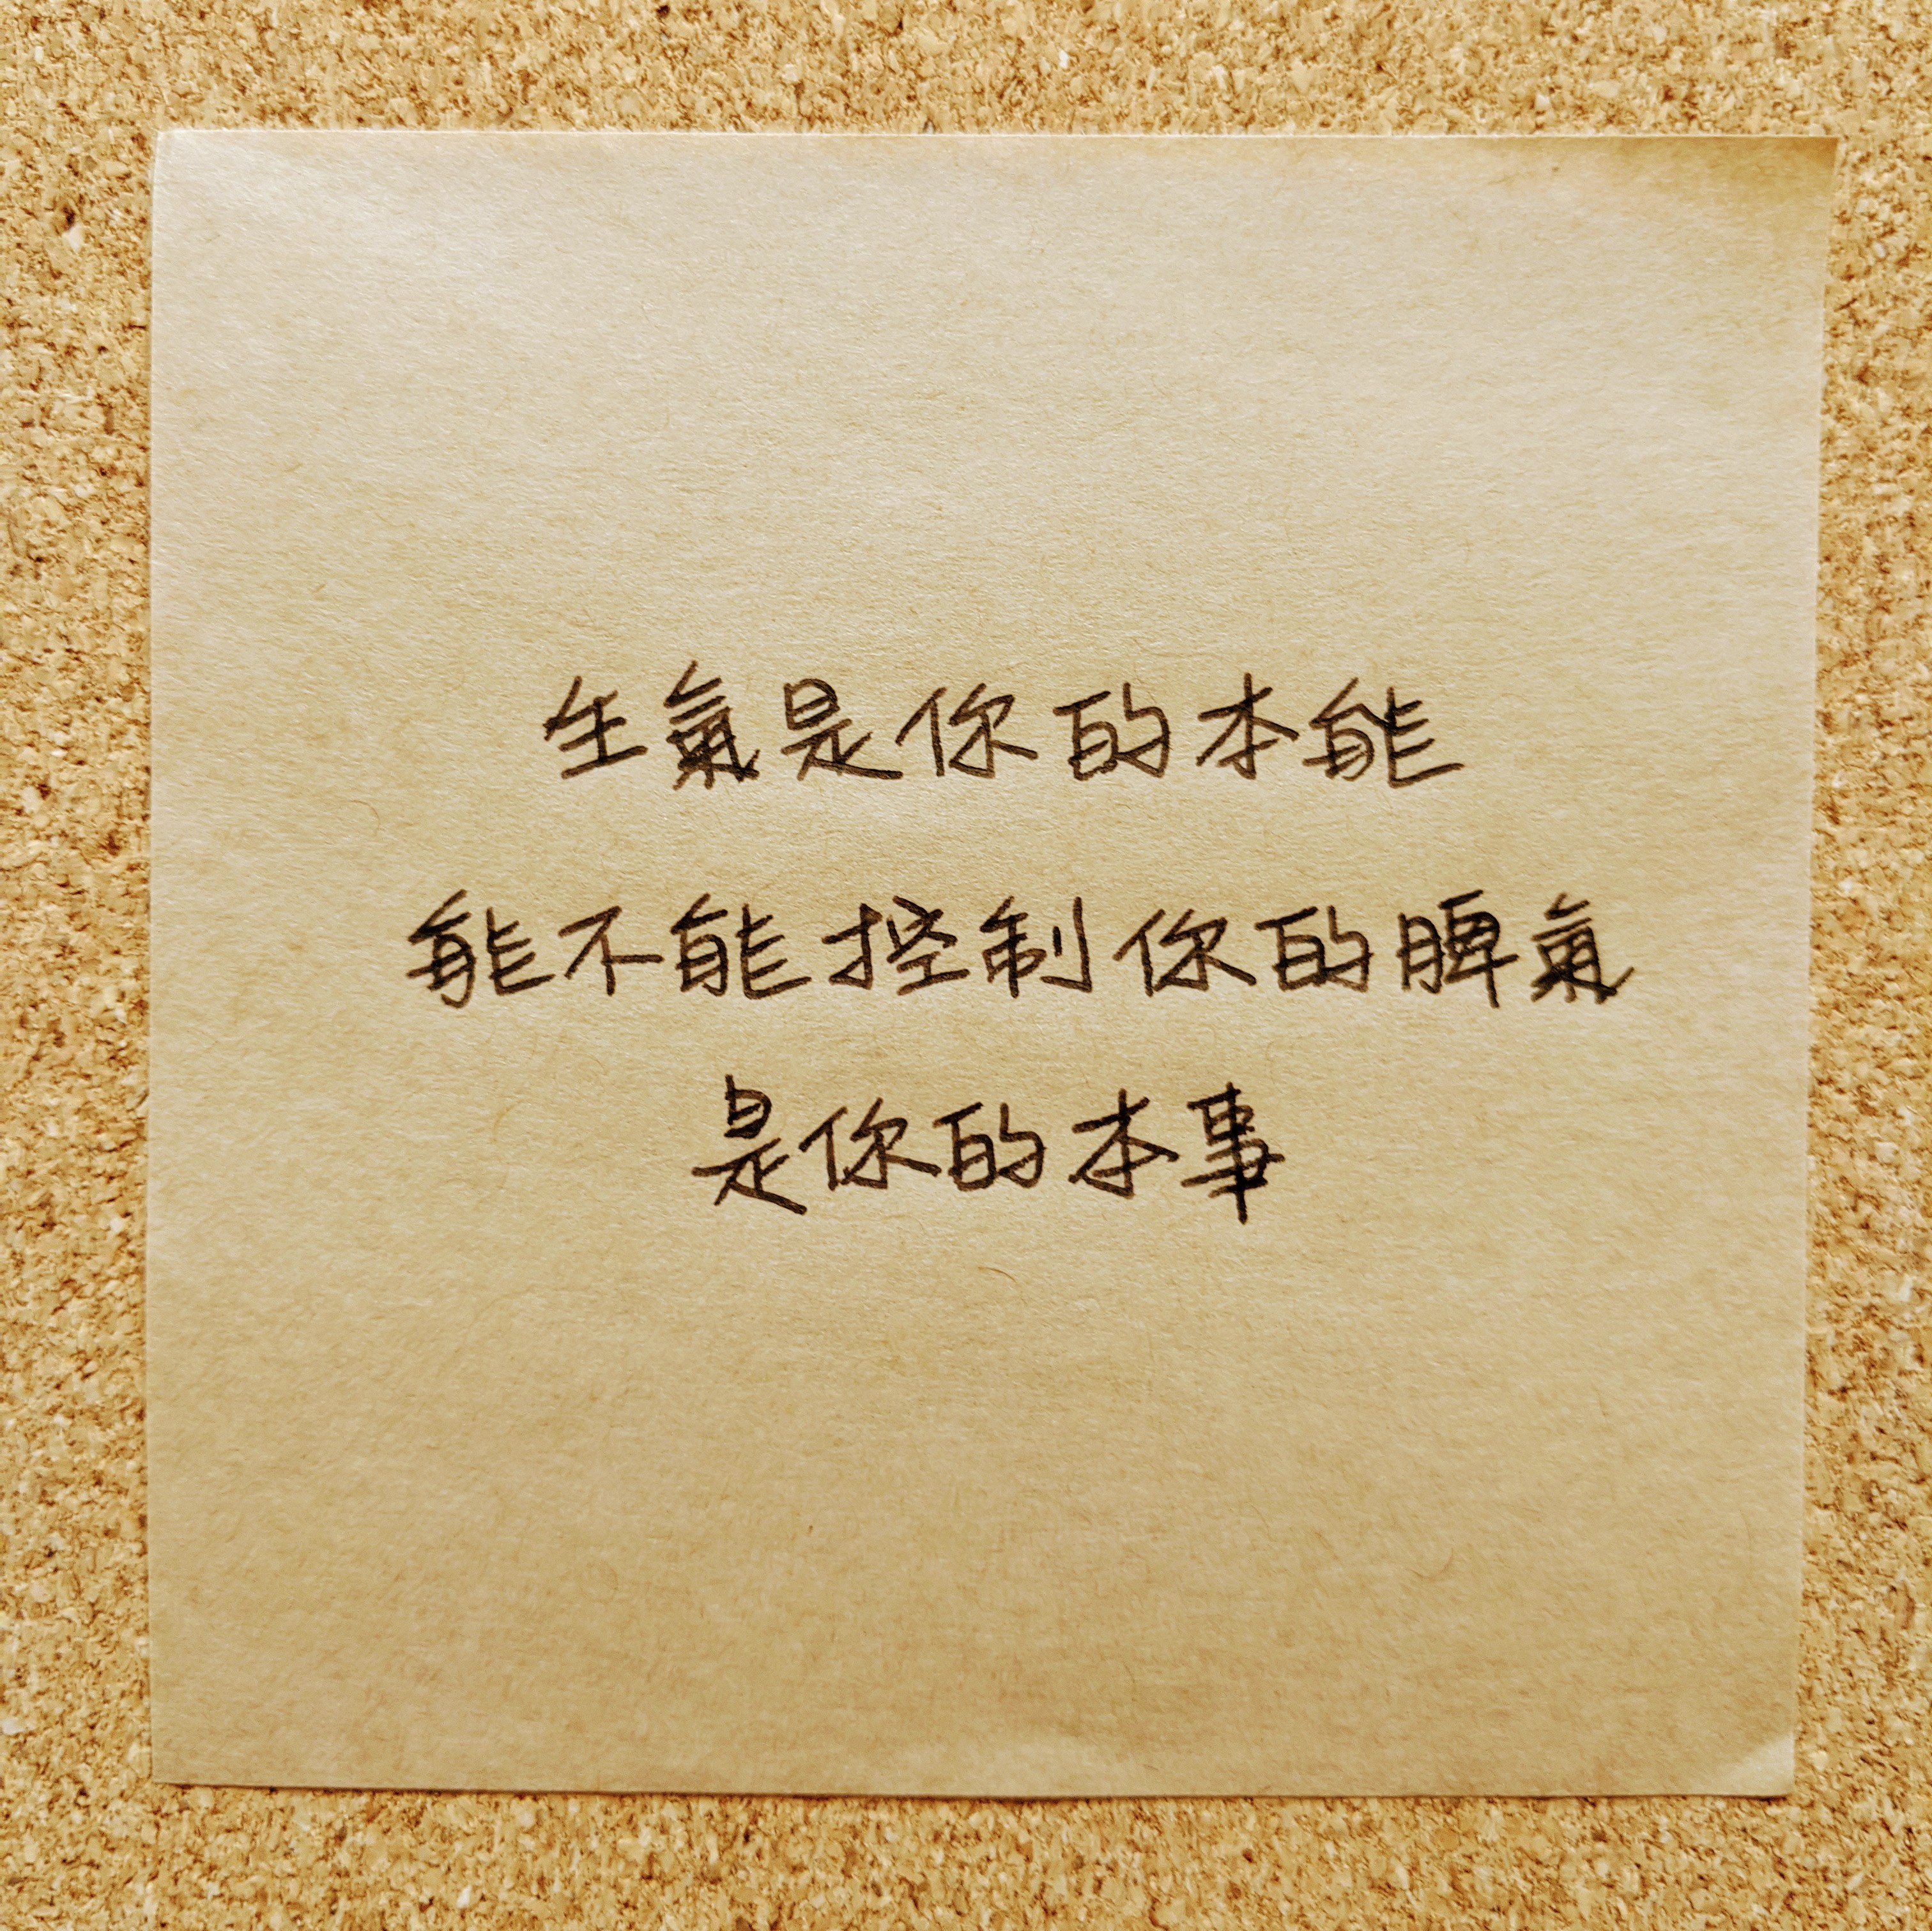 生氣是你的本能
能不能控制你的脾氣
是你的本事